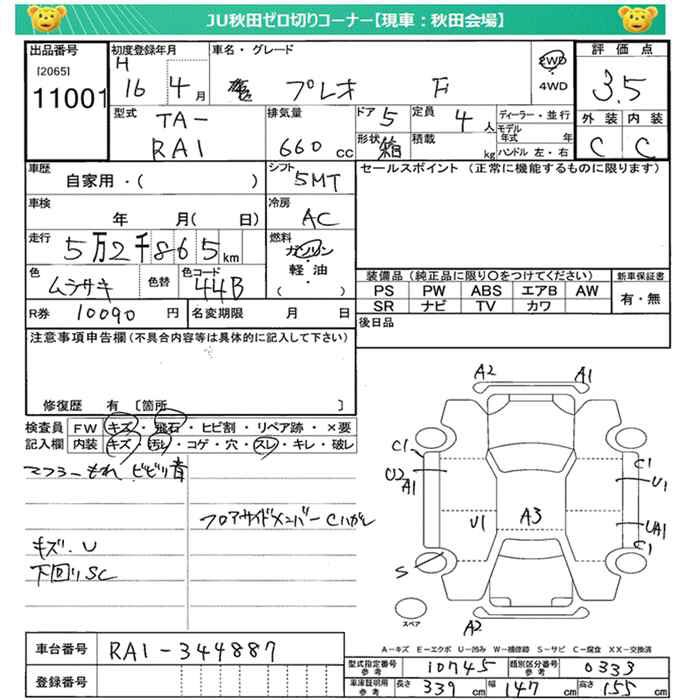 JU秋田ゼロ切りコーナー【現車：秋田会場】
出品番号 初度登録年月 車名・グレード 評価点
[2065] H 16 4月 プレオ F 2WD 3.5
11001 4WD
型式 排気量 ドア 5 定員 4人 ディーラー・並行 外装 内装
TA- モデル年式 年
RA1 660cc 形状 箱 積載 kg ハンドル 左・右 C C
車歴 シフト セールスポイント（正常に機能するものに限ります）
自家用・（ ） 5MT
車検 冷房
年 月（ 日） AC
走行 燃料
5万2千865km ガソリン
色 色替 色コード 軽油 装備品（純正品に限り○をつけてください） 新車保証書
ムラサキ 44B （ ） PS PW ABS エアB AW 有・無
R券 10090円 名変期限 月 日 SR ナビ TV カワ
後日品
注意事項申告欄（不具合内容等は具体的に記入して下さい）
修復歴 有 〔箇所 〕
検査員 FW キズ・飛石・ヒビ割・リペア跡・×要
記入欄 内装 キズ・汚レ・コゲ・穴・スレ・キレ・破レ
マフラーもれ ビビリ音
フロアサイドメンバーCはがし
キズ．U
下回りSC
A2 A1
C1 C1
U2 A1 U1
U1 A3 UA1
C1
S
スペア A2
A－キズ E－エクボ U－凹み W－補修跡 S－サビ C－腐食 XX－交換済
車台番号 RA1-344887
型式指定番号 参考 10745 類別区分番号 参考 0333
登録番号 車庫証明用 参考 長さ 339cm 幅 147cm 高さ 155cm